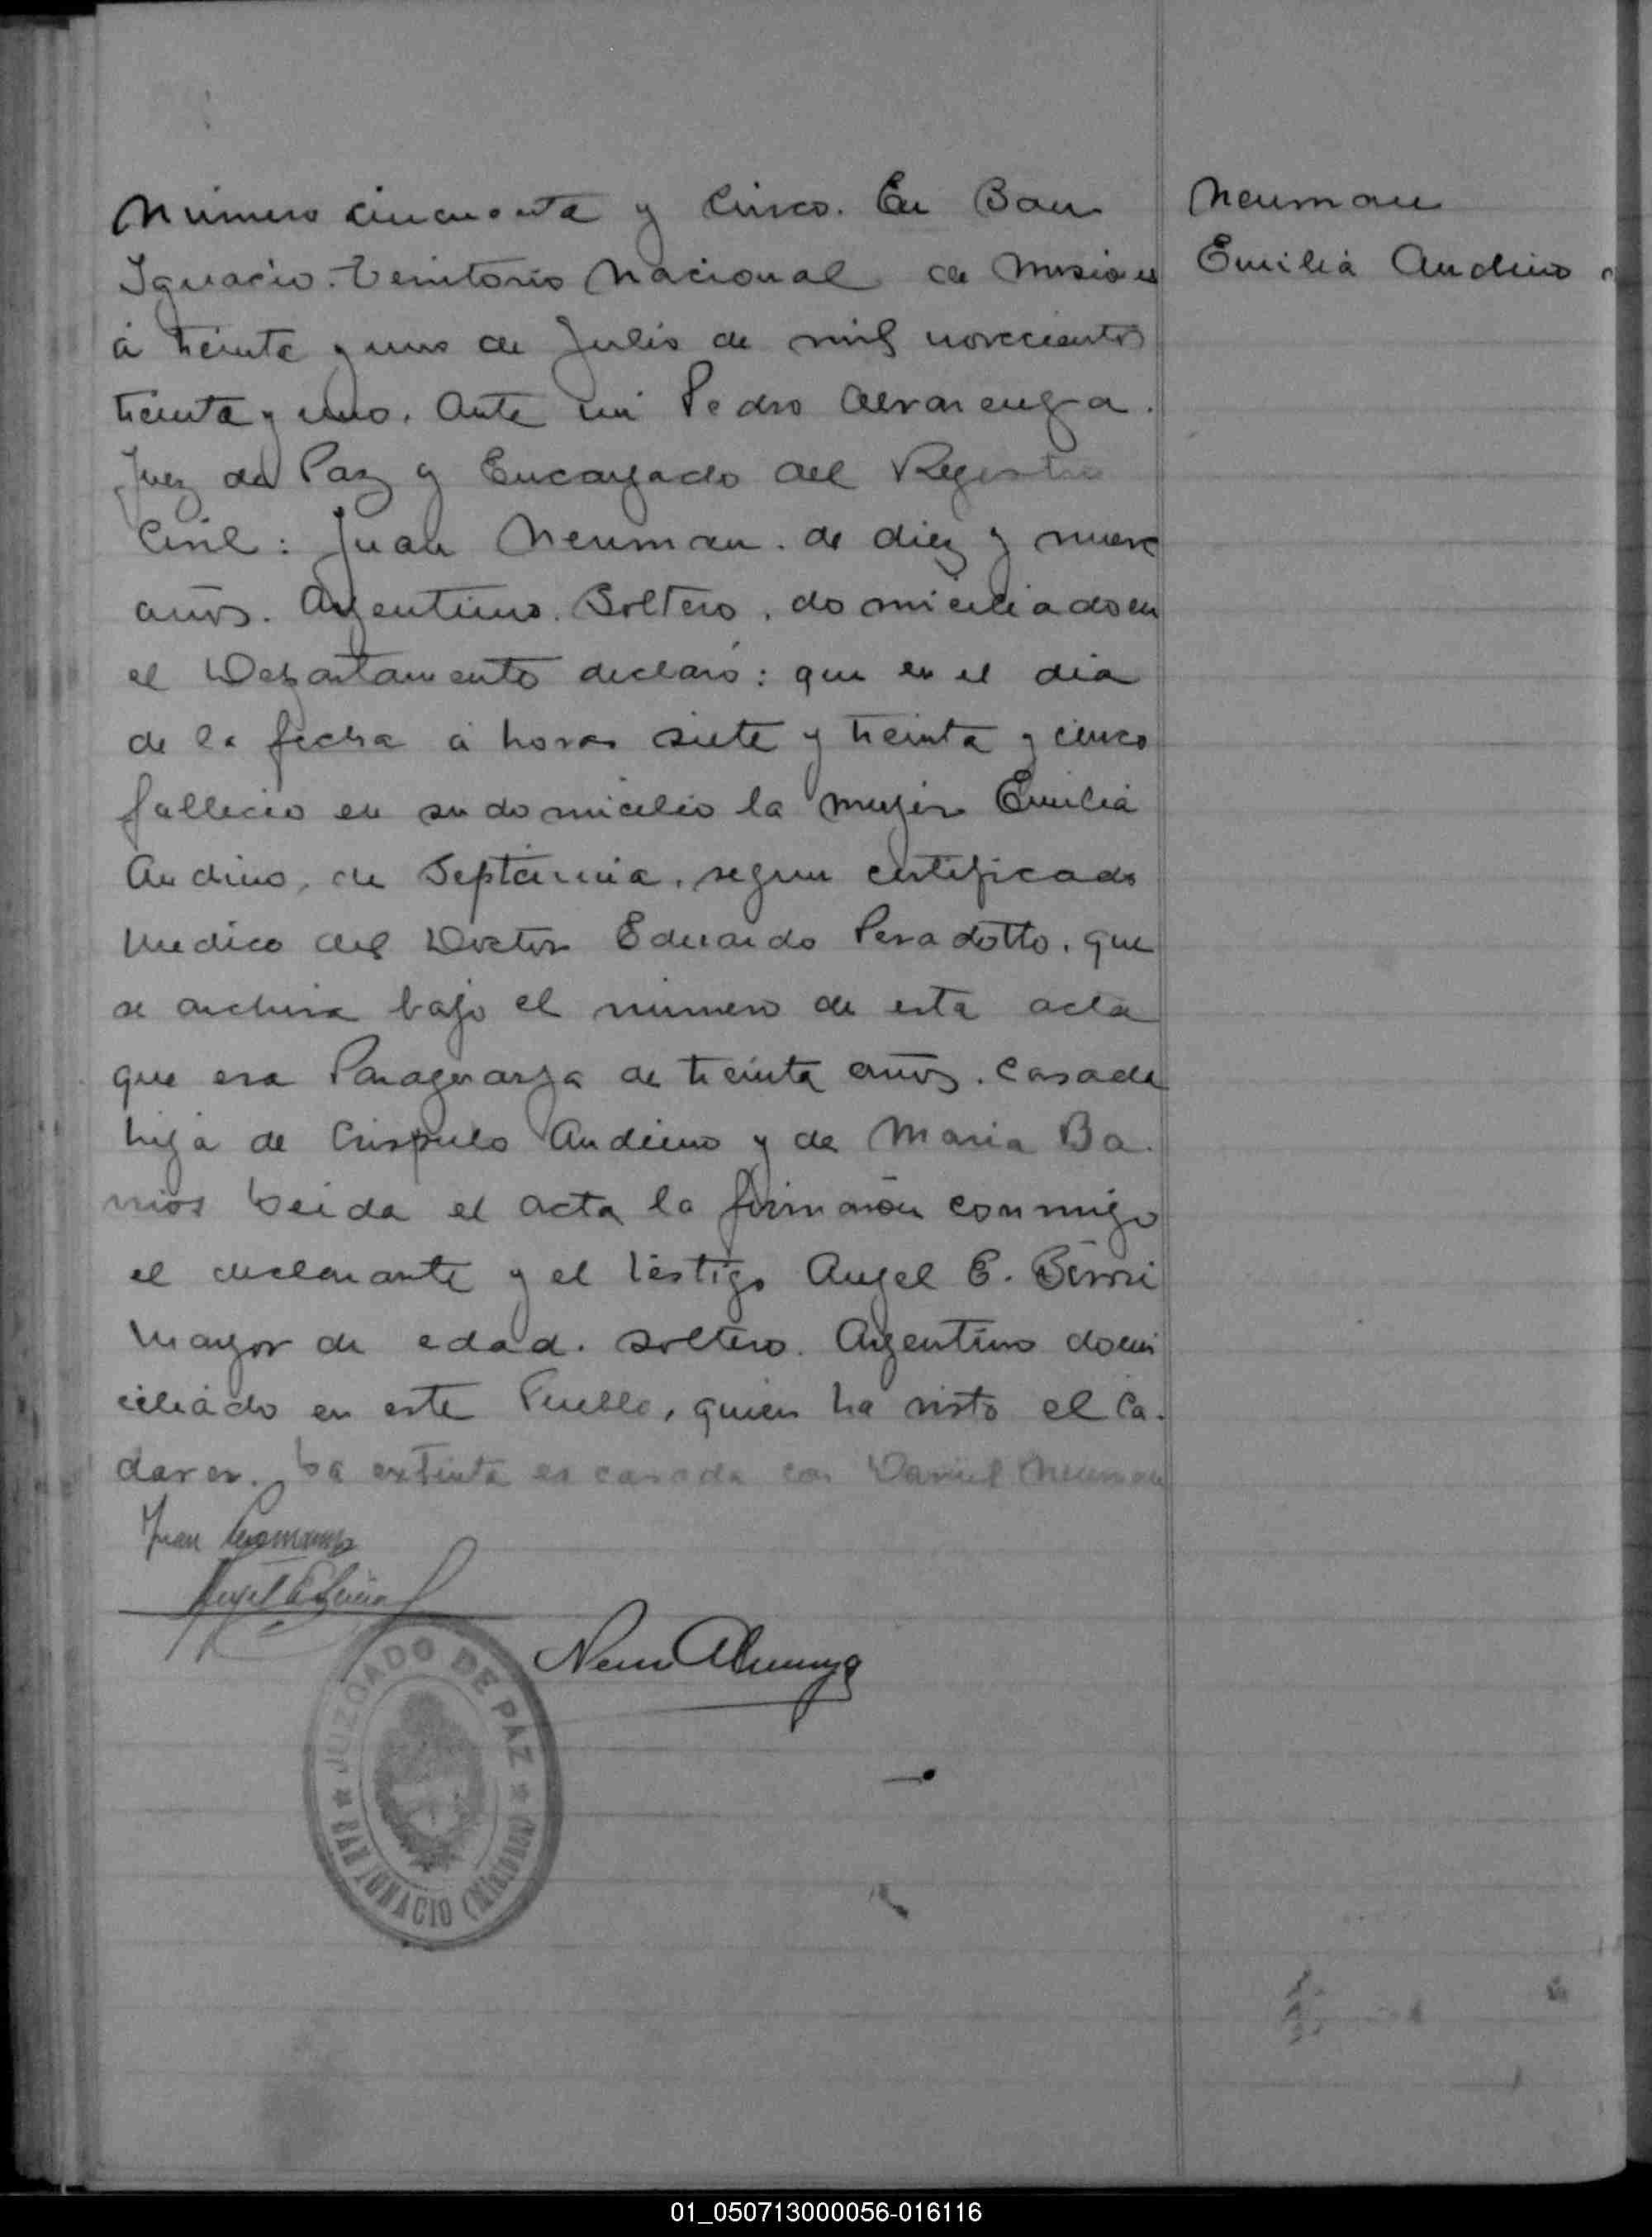 Número cincuenta y Cinco. En San
Ignacio. Territorio Nacional de Misiones
á treinta y uno de Julio de mil novecientos
treinta y uno. Ante mi Pedro Alvarenga.
Juez de Paz y Encargado del Registro
Civil: Juan Neuman. de diez y nueve
años. Argentino. Soltero. domiciliado en
el Departamento declaró: que en el dia
de la fecha á horas siete y treinta y cinco
fallecio en su domicilio la mujer Emilia
Andino, de Septicemia. segun certificado
Medico del Doctor Eduardo Peradotto. que
se archiva bajo el número de esta acta
que era Paraguaya de treinta años. Casada
hija de Crispulo Andino y de Maria Ba.
rrios Leida el acta la firmaron conmigo
el declarante y el testigo Angel E.
Mayor de edad. soltero. Argentino domi
ciliado en este Pueblo, quien ha visto el Ca.
daver. La extinta es casada con Daniel Neuman
Neuman
Emilia Andino
Juan
JUZGADO DE PAZ
SAN IGNACIO (Misiones)
01_050713000056-016116